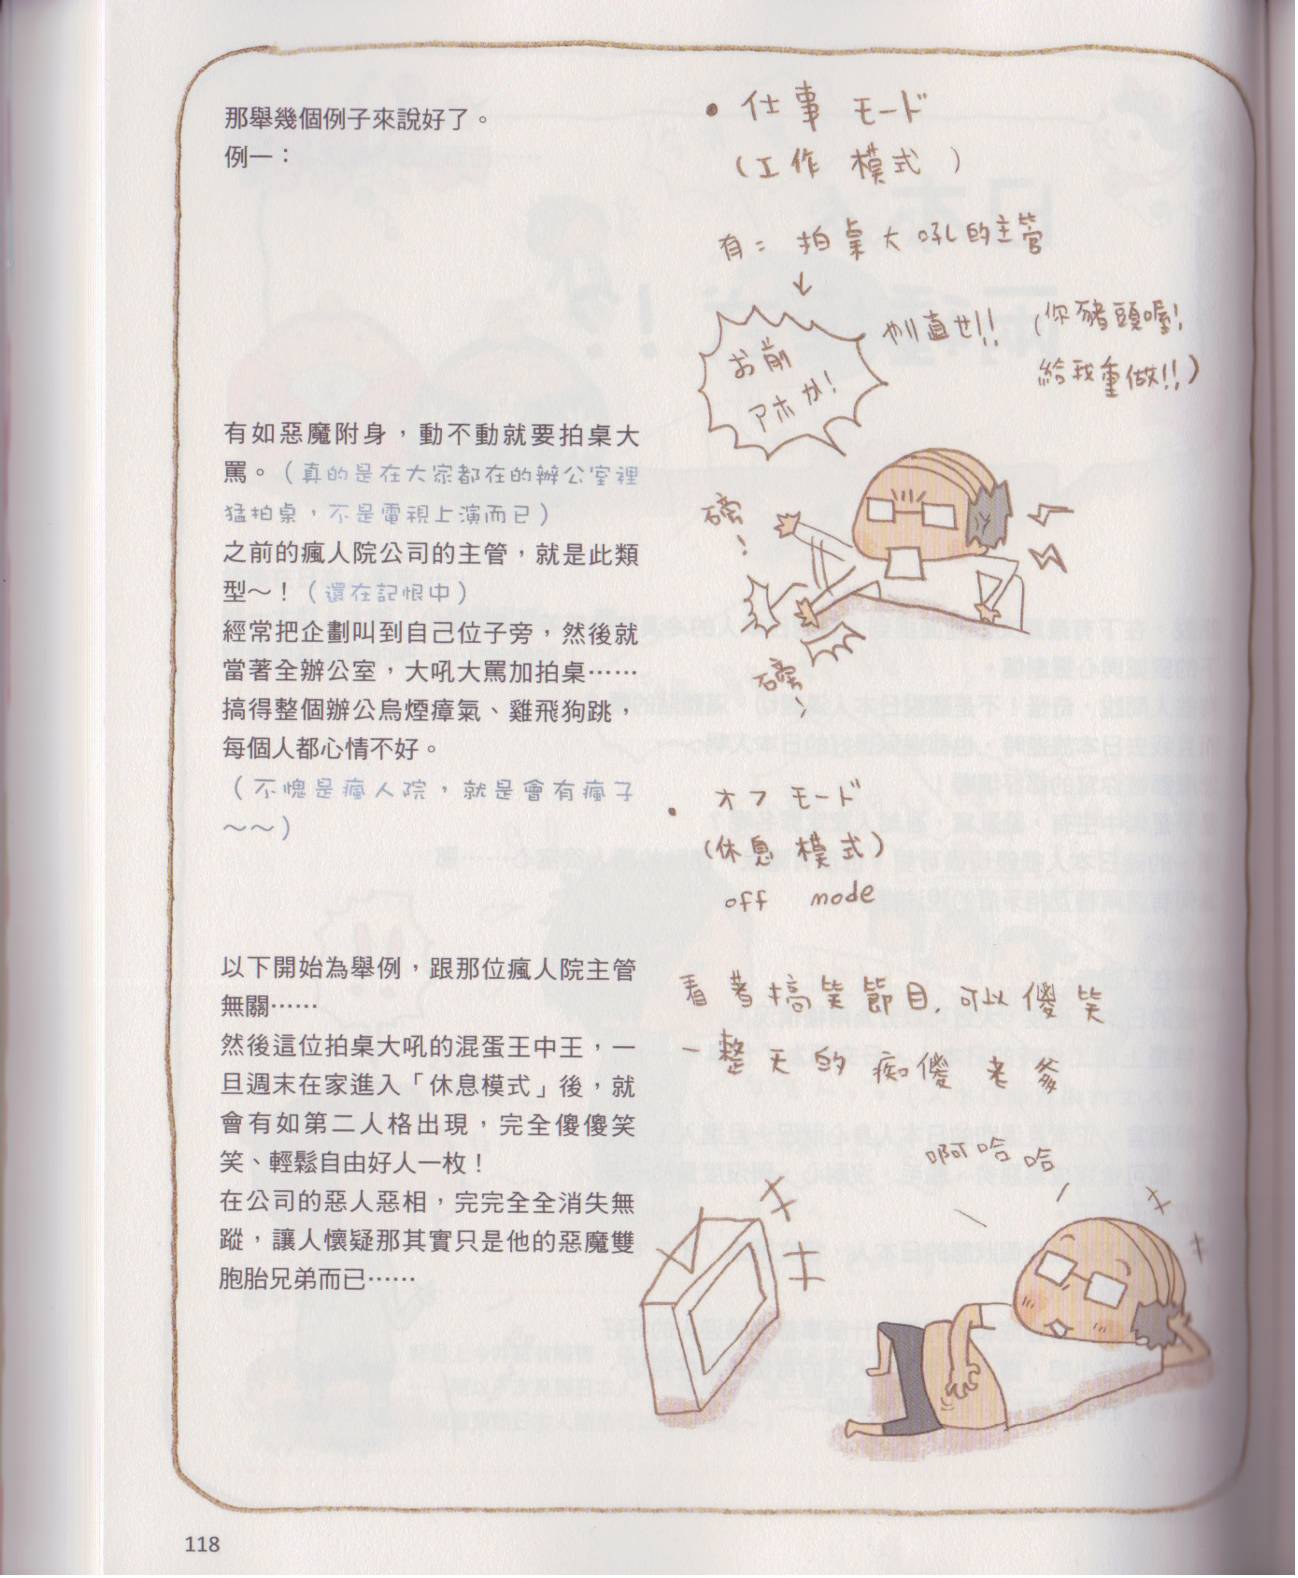 那舉幾個例子來說好了。
例一：
有如惡魔附身，動不動就要拍桌大
罵。（真的是在大家都在的辦公室裡
猛拍桌，不是電視上演而已）
之前的瘋人院公司的主管，就是此類
型～！（還在記恨中）
經常把企劃叫到自己位子旁，然後就
當著全辦公室，大吼大罵加拍桌……
搞得整個辦公烏煙瘴氣、雞飛狗跳，
每個人都心情不好。
（不愧是瘋人院，就是會有瘋子
～～）
以下開始為舉例，跟那位瘋人院主管
無關……
然後這位拍桌大吼的混蛋王中王，一
旦週末在家進入「休息模式」後，就
會有如第二人格出現，完全傻傻笑
笑、輕鬆自由好人一枚！
在公司的惡人惡相，完完全全消失無
蹤，讓人懷疑那其實只是他的惡魔雙
胞胎兄弟而已……
• 仕事 モード
（工作 模式）
有： 拍桌大吼的主管
↓
お前
アホか！
やり直せ!!
（你豬頭喔！
給我重做!!）
磅！
磅！
• オフ モード
（休息 模式）
off mode
看著搞笑節目，可以傻笑
一整天的痴傻老爹
啊哈哈
118